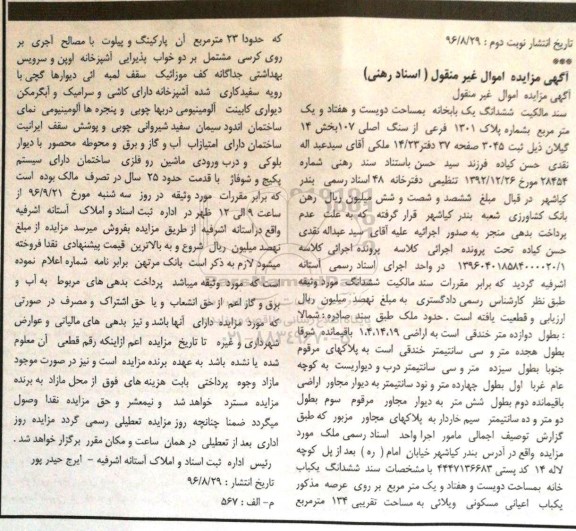 تاریخ انتشار نوبت دوم : ۹۶/۸/۲۹
آگهی مزایده اموال غیر منقول ( اسناد رهنی)
آگهی مزایده اموال غیر منقول
سند مالکیت ششدانگ یک بابخانه بمساحت دویست و هفتاد و یک
متر مربع بشماره پلاک ۱۳۰۱ فرعی از سنگ اصلی ۱۰۷بخش ۱۴
گیلان ذیل ثبت ۳۰۴۵ صفحه ۳۷ دفتر۱۴/۲۳ ملکی آقای سیدعبد اله
نقدی حسن کیاده فرزند سید حسن باستناد سند رهنی شماره
۲۸۴۵۴ مورخ ۱۳۹۲/۱۲/۲۶ تنظیمی دفترخانه ۴۸ اسناد رسمی بندر
کیاشهر در قبال مبلغ ششصد و شصت و شش میلیون ریال در رهن
بانک کشاورزی شعبه بندر کیاشهر قرار گرفته که به علت عدم
پرداخت بدهی منجر به صدور اجرائیه علیه آقای سید عبداله نقدی
حسن کیاده تحت پرونده اجرائی کلاسه پرونده اجرائی کلاسه
۱۳۹۶۰۴۰۱۸۵۸۴۰۰۰۰۲۰/۱ در واحد اجرای اسناد رسمی آستانه
اشرفیه گردید که برابر مقررات سند مالکیت ششدانگ موردوثیقه
طبق نظر کارشناس رسمی دادگستری به مبلغ نهصد میلیون ریال
ارزیابی و قطعیت یافته است . حدود ملک طبق سند صادره : شمالا
: بطول دوازده متر خندقی است به اراضی ۱،۴،۱۴،۱۹ باقیمانده شرقا
بطول هجده متر و سی سانتیمتر خندقی است به پلاکهای مرقوم
جنوبا بطول سیزده متر و سی سانتیمتر درب و دیواریست به کوچه
عام غربا اول بطول چهارده متر و نود سانتیمتر به دیوار مجاور اراضی
باقیمانده دوم بطول شش متر به دیوار مجاور مرقوم سوم بطول
دو متر و ده سانتیمتر سیم خاردار به پلاکهای مجاور مزبور که طبق
گزارش توصیف اجمالی مامور اجرا واحد اسناد رسمی ملک مورد
مزایده واقع در آدرس بندر کیاشهر خیابان امام ( ره ) بعد از پل کوچه
لاله ۱۴ کد پستی ۴۴۴۷۱۳۶۶۸۳ با مشخصات سند ششدانگ یکباب
خانه بمساحت دویست و هفتاد و یک متر مربع بر روی عرصه مذکور
یکباب اعیانی مسکونی ویلائی به مساحت تقریبی ۱۳۴ مترمربع
که حدودا ۲۳ مترمربع آن پارکینگ و پیلوت با مصالح آجری بر
روی کرسی مشتمل بر دو خواب پذیرایی آشپزخانه اوپن و سرویس
بهداشتی جداگانه کف موزائیک سقف لمبه ائی دیوارها گچی با
رویه سفیدکاری شده آشپزخانه دارای کاشی و سرامیک و آبگرمکن
دیواری کابینت آلومینیومی دربها چوبی و پنجره ها آلومینیومی نمای
ساختمان اندود سیمان سفید شیروانی چوبی و پوشش سقف ایرانیت
ساختمان دارای امتیازاب آب و گاز و برق و محوطه محصور با دیوار
بلوکی و درب ورودی ماشین رو فلزی ساختمان دارای سیستم
پکیج و شوفاژ با قدمت حدود ۲۵ سال در تصرف مالک بوده است
که برابر مقررات مورد وثیقه در روز سه شنبه مورخ ۹۶/۹/۲۱ از
ساعت ۹ الی ۱۲ ظهر در اداره ثبت اسناد و املاک آستانه اشرفیه
واقع درآستانه اشرفیه از طریق مزایده بفروش میرسد مزایده از مبلغ
نهصد میلیون ریال شروع و به بالاترین قیمت پیشنهادی نقدا فروخته
میشود لازم به ذکر است بانک مرتهن برابر نامه شماره اعلام نموده
است که مورد وثیقه میباشد پرداخت بدهی های مربوط به آب و
برق و گاز اعم از حق انشعاب و یا حق اشتراک و مصرف در صورتی
که مورد مزایده دارای آنها باشد و نیز بدهی های مالیاتی و عوارض
شهرداری و غیره تا تاریخ مزایده اعم ازاینکه رقم قطعی آن معلوم
شده یا نشده باشد به عهده برنده مزایده است و نیز در صورت موجود
مازاد وجوه پرداختی بابت هزینه های فوق از محل مازاد به برنده
مزایده مسترد خواهد شد و نیمعشر و حق مزایده نقدا وصول
میگردد ضمنا چنانچه روز مزایده تعطیلی رسمی گردد مزایده روز
اداری بعد از تعطیلی در همان ساعت و مکان مقرر برگزار خواهد شد .
رئیس اداره ثبت اسناد و املاک آستانه اشرفیه - ایرج حیدر پور
تاریخ انتشار : ۹۶/۸/۲۹
م- الف : ۵۶۷